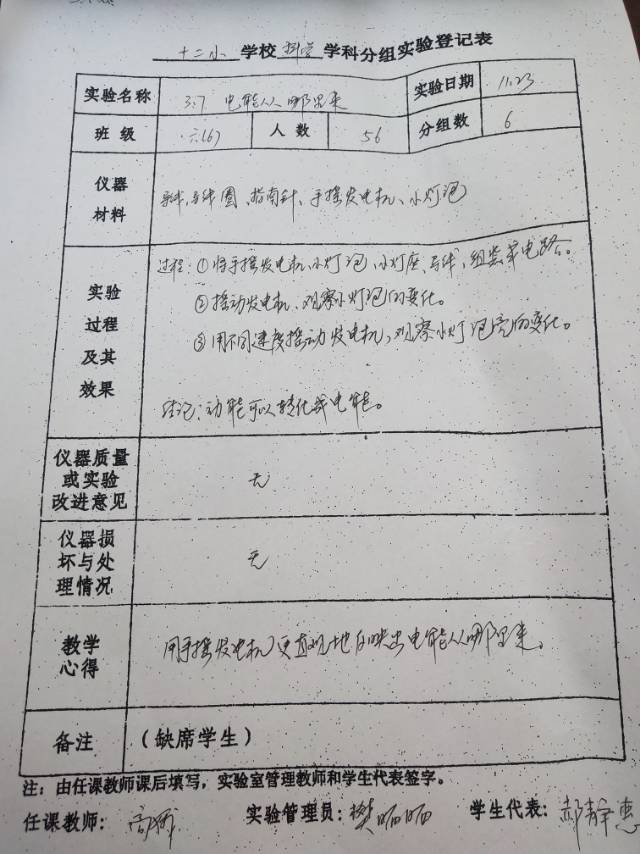 十二小 学校 科学 学科分组实验登记表
实验名称 3.7 电能从哪里来 实验日期 11.23
班级 六(6) 人数 56 分组数 6
仪器材料 导线圈、指南针、手摇发电机、小灯泡
实验过程及其效果
过程:①将手摇发电机、小灯泡、小灯座、导线,组装成电路。
②摇动发电机、观察小灯泡的变化。
③用不同速度摇动发电机,观察小灯泡亮的变化。
结论:动能可以转化成电能。
仪器质量或实验改进意见 无
仪器损坏与处理情况 无
教学心得 用手摇发电机更直观地反映出电能从哪里来。
备注 (缺席学生)
注:由任课教师课后填写,实验室管理教师和学生代表签字。
任课教师: 实验管理员:樊丽丽 学生代表:郝静惠